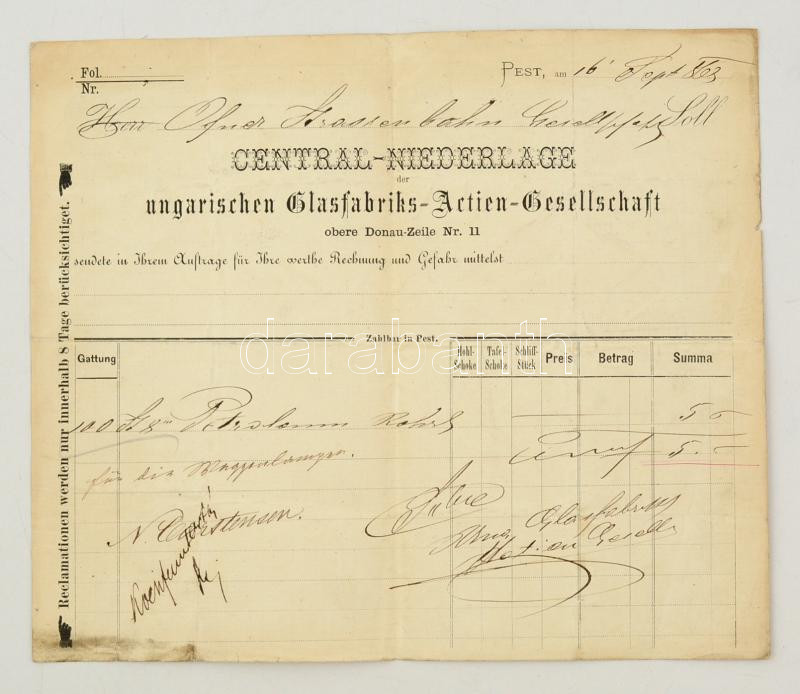 Fol.
Nr.
PEST, am 16 Sept
Herr Ofner Strassenbahn Gesellschaft Soll
CENTRAL-NIEDERLAGE
der
ungarischen Glasfabriks-Actien-Gesellschaft
obere Donau-Zeile Nr. 11
sendete in Ihrem Auftrage für Ihre werthe Rechnung und Gefahr mittelst
Zahlbar in Pest.
Gattung Hohl-Schoke Tafel-Schoke Schliff-Stück Preis Betrag Summa
100 Petroleum 5 -
für die Waggonlampen. 5. -
N. Carstensen.
Glasfabriks
Actien Gesells
Reclamationen werden nur innerhalb 8 Tage berücksichtiget.
darabanth